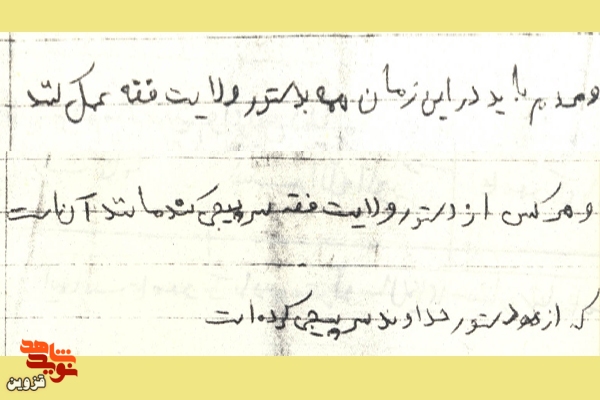 ومردم باید در این زمان همه بدستور ولایت فقه عمل کنند
وهر کس از دستور ولایت فقه سرپیچی کند مانند آن است
که از دستور خداوند سرپیچی کرده است
شاهد
نوید
قزوین